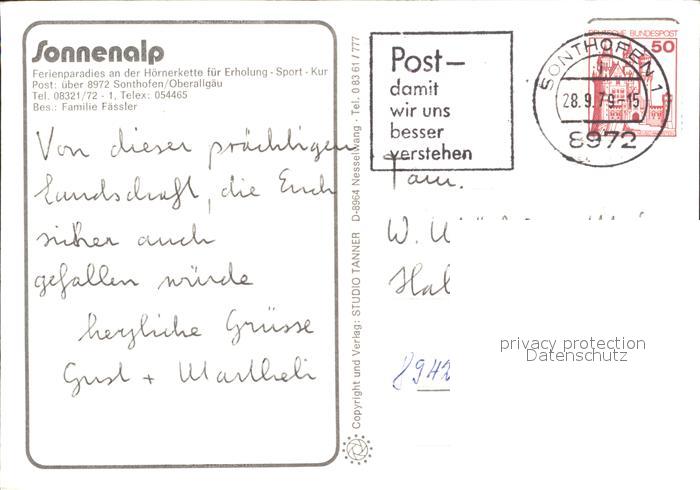 Sonnenalp
Ferienparadies an der Hörnerkette für Erholung - Sport - Kur
Post: über 8972 Sonthofen/Oberallgäu
Tel. 08321/72 - 1, Telex: 054465
Bes.: Familie Fässler
Von dieser prächtigen
Landschaft, die Euch
sicher auch
gefallen würde
herzliche Grüsse
Gust + Martheli
Copyright und Verlag: STUDIO TANNER D-8964 Nesselwang · Tel. 0 83 61 / 777
Post –
damit
wir uns
besser
verstehen
DEUTSCHE BUNDESPOST
50
SONTHOFEN 1
28.9.79-15
8972
Fam.
W.
Hal
8942
privacy protection
Datenschutz